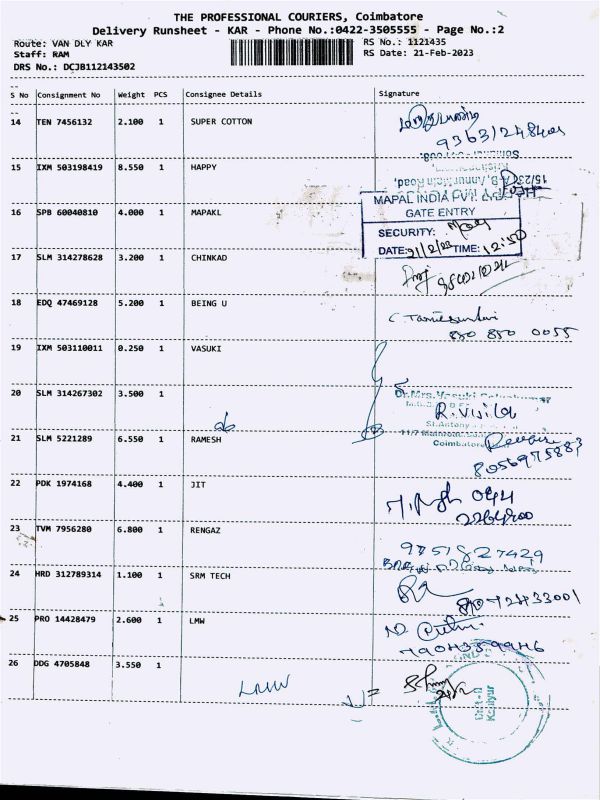 THE PROFESSIONAL COURIERS, Coimbatore
Delivery Runsheet - KAR - Phone No.:0422-3505555 - Page No.:2
Route: VAN DLY KAR
RS No.: 1121435
Staff: RAM
RS Date: 21-Feb-2023
DRS No.: DCJB112143502
S No Consignment No Weight PCS Consignee Details Signature
14 TEN 7456132 2.100 1 SUPER COTTON
15 IXM 503198419 8.550 1 HAPPY
MAPAL INDIA PVT. LTD.
GATE ENTRY
16 SPB 60040810 4.000 1 MAPAKL
SECURITY:
DATE: 21/2/23 TIME: 12:50
17 SLM 314278628 3.200 1 CHINKAD
18 EDQ 47469128 5.200 1 BEING U
850 850 0055
19 IXM 503110011 0.250 1 VASUKI
20 SLM 314267302 3.500 1
Dr.Mrs.Vasuki
R. Vijila
Coimbatore
21 SLM 5221289 6.550 1 RAMESH
8056975883
22 PDK 1974168 4.400 1 JIT
2264200
23 TVM 7956280 6.800 1 RENGAZ
9751827429
24 HRD 312789314 1.100 1 SRM TECH
25 PRO 14428479 2.600 1 LMW
26 DDG 4705848 3.550 1
LMW
Unit-II
Kaniyur